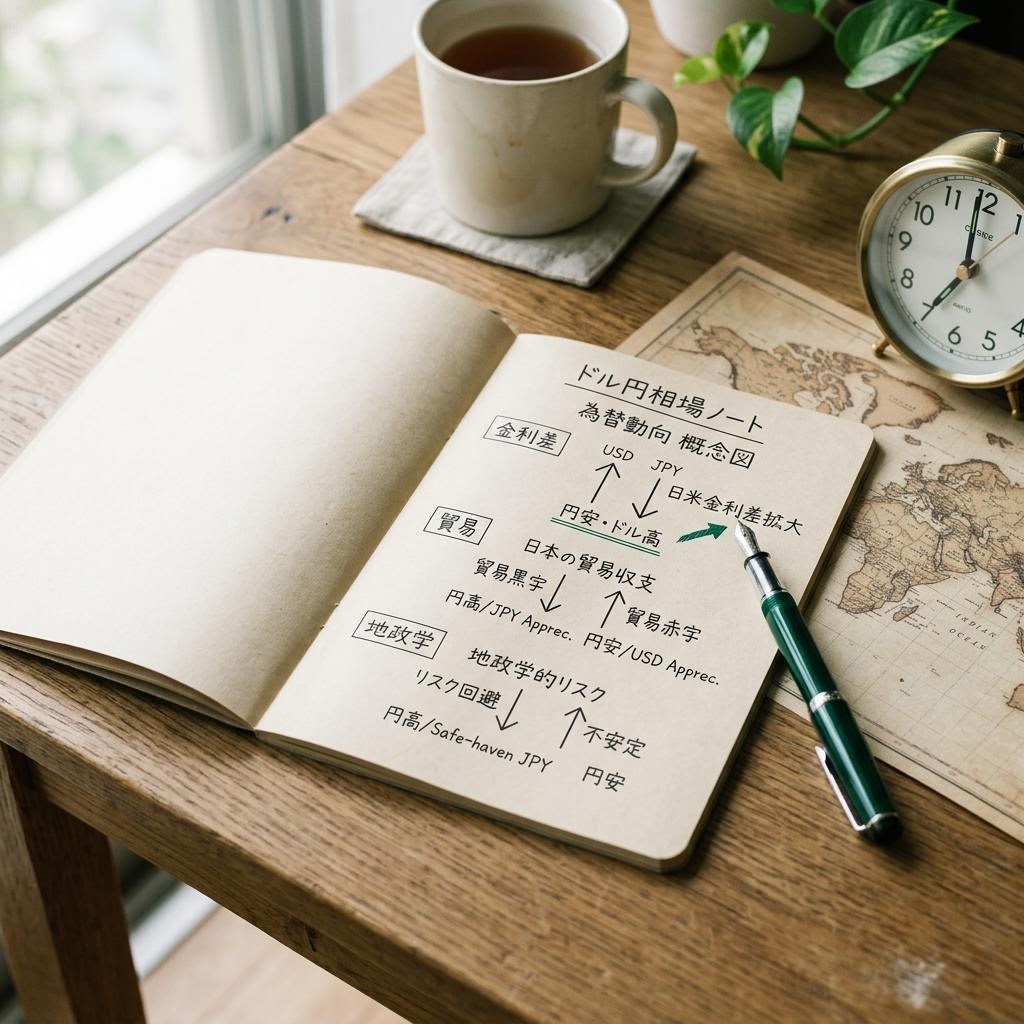 ドル円相場ノート
為替動向 概念図
金利差
USD JPY
↑ ↓ 日米金利差拡大
円安・ドル高
貿易
日本の貿易収支
貿易黒字 ↓ ↑ 貿易赤字
円高/JPY Apprec. 円安/USD Apprec.
地政学
地政学的リスク
リスク回避 ↓ ↑ 不安定
円高/Safe-haven JPY 円安
11 12 1
10
9
8
7 6 5 4
INDIAN
OCEAN